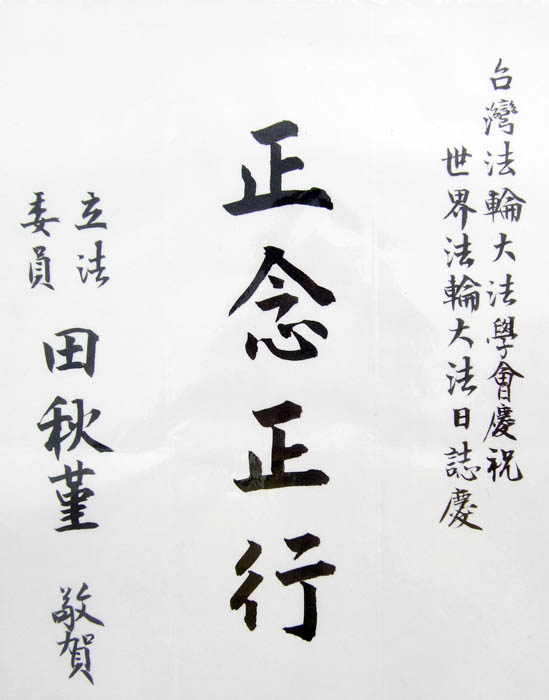 台灣法輪大法學會慶祝
世界法輪大法日誌慶
正念正行
立法
委員
田秋堇
敬賀